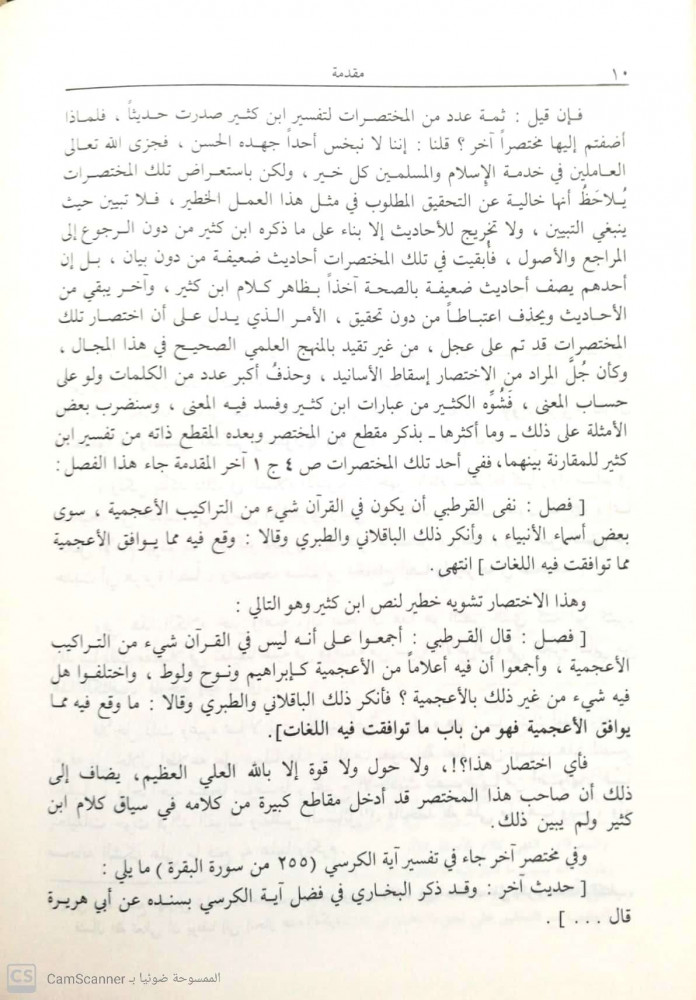 ١٠
مقدمة
فإن قيل : ثمة عدد من المختصرات لتفسير ابن كثير صدرت حديثاً ، فلماذا
أضفتم إليها مختصراً آخر ؟ قلنا : إننا لا نبخس أحداً جهده الحسن ، فجزى الله تعالى
العاملين في خدمة الإسلام والمسلمين كل خير ، ولكن باستعراض تلك المختصرات
يُلاحَظُ أنها خالية عن التحقيق المطلوب في مثل هذا العمل الخطير ، فلا تبيين حيث
ينبغي التبيين ، ولا تخريج للأحاديث إلا بناء على ما ذكره ابن كثير من دون الرجوع إلى
المراجع والأصول ، فأُبقيت في تلك المختصرات أحاديث ضعيفة من دون بيان ، بل إن
أحدهم يصف أحاديث ضعيفة بالصحة آخذاً بظاهر كلام ابن كثير ، وآخر يبقي من
الأحاديث ويحذف اعتباطاً من دون تحقيق ، الأمر الذي يدل على أن اختصار تلك
المختصرات قد تم على عجل ، من غير تقيد بالمنهج العلمي الصحيح في هذا المجال ،
وكأن جُلَّ المراد من الاختصار إسقاط الأسانيد ، وحذفُ أكبر عدد من الكلمات ولو على
حساب المعنى ، فَشُوِّه الكثير من عبارات ابن كثير وفسد فيه المعنى ، وسنضرب بعض
الأمثلة على ذلك ـ وما أكثرها ـ بذكر مقطع من المختصر وبعده المقطع ذاته من تفسير ابن
كثير للمقارنة بينهما، ففي أحد تلك المختصرات ص ٤ ج ١ آخر المقدمة جاء هذا الفصل :
[ فصل : نفى القرطبي أن يكون في القرآن شيء من التراكيب الأعجمية ، سوى
بعض أسماء الأنبياء ، وأنكر ذلك الباقلاني والطبري وقالا : وقع فيه مما يوافق الأعجمية
مما توافقت فيه اللغات ] انتهى.
وهذا الاختصار تشويه خطير لنص ابن كثير وهو التالي :
[ فصل : قال القرطبي : أجمعوا على أنه ليس في القرآن شيء من التراكيب
الأعجمية ، وأجمعوا أن فيه أعلاماً من الأعجمية كإبراهيم ونوح ولوط ، واختلفوا هل
فيه شيء من غير ذلك بالأعجمية ؟ فأنكر ذلك الباقلاني والطبري وقالا : ما وقع فيه مما
يوافق الأعجمية فهو من باب ما توافقت فيه اللغات].
فأي اختصار هذا؟!، ولا حول ولا قوة إلا بالله العلي العظيم، يضاف إلى
ذلك أن صاحب هذا المختصر قد أدخل مقاطع كبيرة من كلامه في سياق كلام ابن
كثير ولم يبين ذلك.
وفي مختصر آخر جاء في تفسير آية الكرسي (٢٥٥ من سورة البقرة ) ما يلي :
[ حديث آخر : وقد ذكر البخاري في فضل آية الكرسي بسنده عن أبي هريرة
قال . . . ] .
CS الممسوحة ضوئيا بـ CamScanner